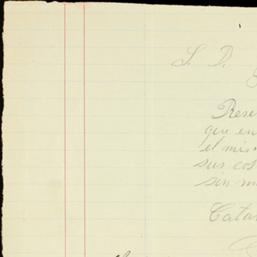 S. D.
Prese
que en
el mis
sus cos
sin m
Catar